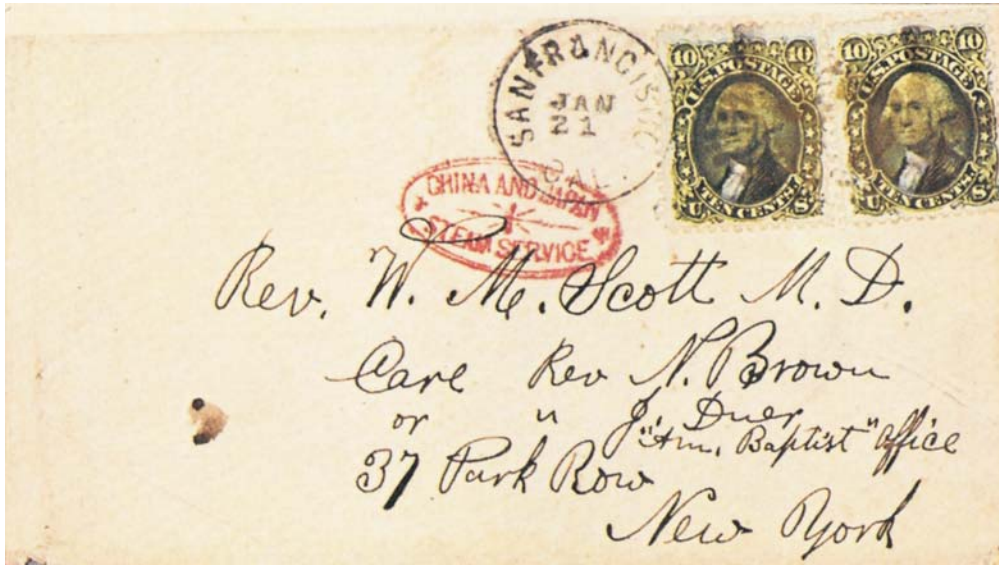 SAN FRANCISCO
JAN
21
CAL.
10 10
U.S. POSTAGE
TEN CENTS
U S
10 10
U.S. POSTAGE
TEN CENTS
U S
CHINA AND JAPAN
STEAM SERVICE
Rev. W. M. Scott M. D.
Care Rev N. Brown
or " J. Duer
"Am. Baptist" office
37 Park Row
New York